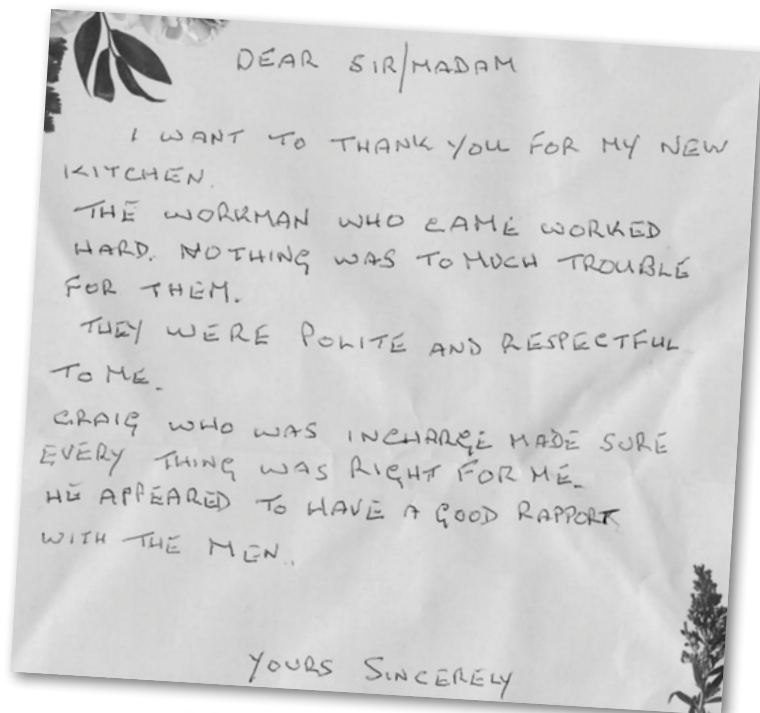 DEAR SIR/MADAM
I WANT TO THANK YOU FOR MY NEW
KITCHEN.
THE WORKMAN WHO CAME WORKED
HARD. NOTHING WAS TO MUCH TROUBLE
FOR THEM.
THEY WERE POLITE AND RESPECTFUL
TO ME.
CRAIG WHO WAS INCHARGE MADE SURE
EVERY THING WAS RIGHT FOR ME.
HE APPEARED TO HAVE A GOOD RAPPORT
WITH THE MEN.
YOURS SINCERELY